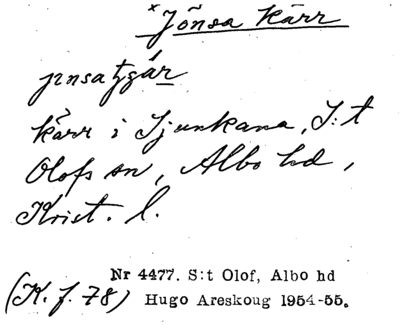 × Jönsa Kärr
kärr i Ljunkana, S:t
Olofs sn, Albo hd,
Krist. l.
Nr 4477. S:t Olof, Albo hd
(K. f. 78) Hugo Areskoug 1954-55.